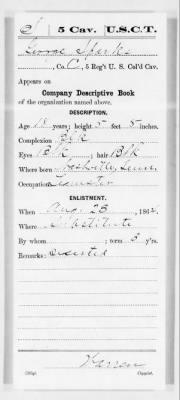 S | 5 Cav. | U.S.C.T.
George Sparks
, Co. C, 5 Reg't U. S. Col'd Cav.
Appears on
Company Descriptive Book
of the organization named above.
DESCRIPTION.
Age 18 years; height 5 feet 5 inches.
Complexion Blk
Eyes Blk; hair Blk
Where born Nashville, Tenn.
Occupation Teamster
ENLISTMENT.
When Aug. 23, 186
Where Substitute
By whom ; term 3 y'rs.
Remarks: Deserted
Warren
Copyist.